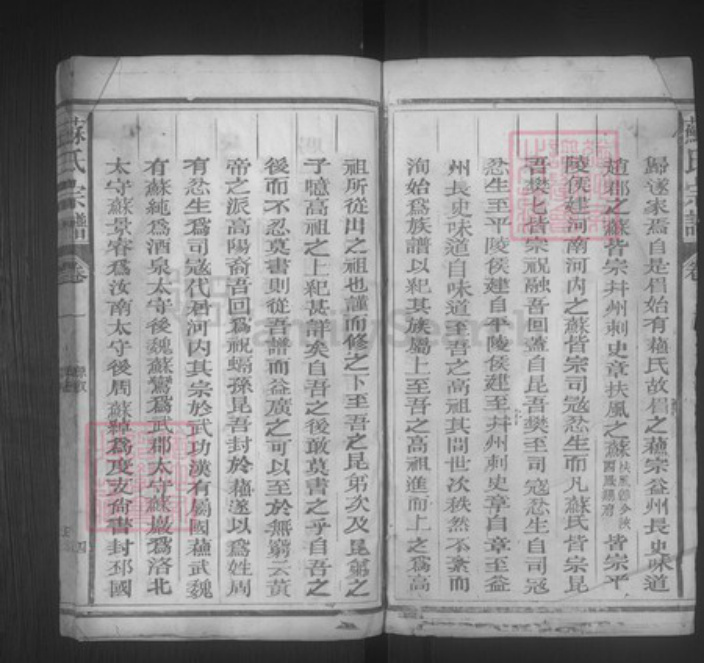 歸遂家焉自是眉始有蘓氏故眉之蘓宗益州長史味道
趙郡之蘇皆宗幷州刺史章扶風之蘇皆宗平
陵侯建河南河内之蘇皆宗司寇忿生而凡蘇氏皆宗昆
吾樊七皆宗祝融吾回蓋自昆吾樊至司寇忿生自司冠
忿生至平陵侯建自平陵侯建至幷州刺史章自章至益
州長史味道自味道至吾之高祖其間世次秩然不紊而
洵始爲族譜以紀其族屬上至吾之高祖進而上之爲高
祖所從出之祖也謹而修之下至吾之昆弟次及昆弟之
子噫高祖之上紀甚詳矣自吾之後敢莫書之乎自吾之
後而不忍莫書則從吾譜而益廣之可以至於無窮云黃
帝之派高陽裔吾回爲祝螎孫昆吾封於蘓遂以爲姓周
有忿生爲司寇代君河内其宗於武功漢有屬國蘓武魏
有蘇純爲酒泉太守後魏蘇鸞爲武郡太守蘇巖爲洛北
太守蘇景睿爲汝南太守後周蘇綽爲度支尙書封邳國
蘇氏宗譜
卷一
四